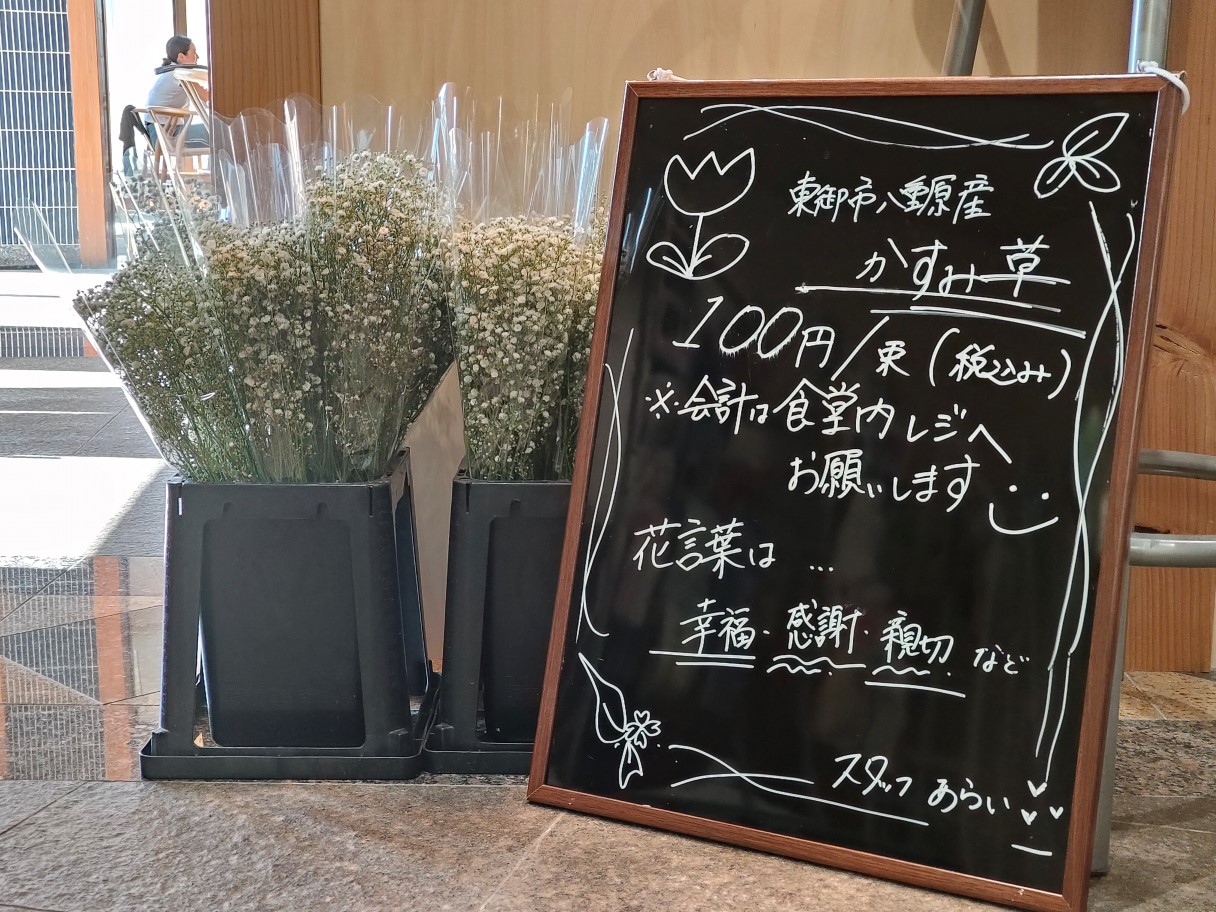 東御市八重原産
かすみ草
100円/束(税込み)
※会計は食堂内レジへ
お願いします
花言葉は…
幸福・感謝・親切など
スタッフ あらい